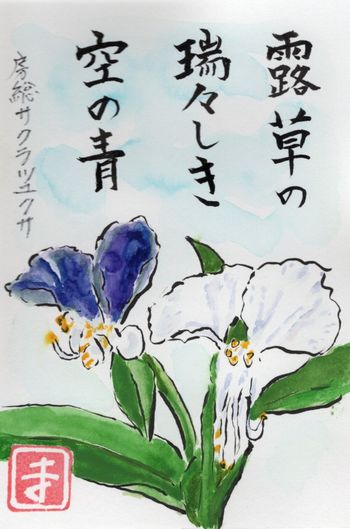 露草の
瑞々しき
空の青
房総サクラツユクサ
ま